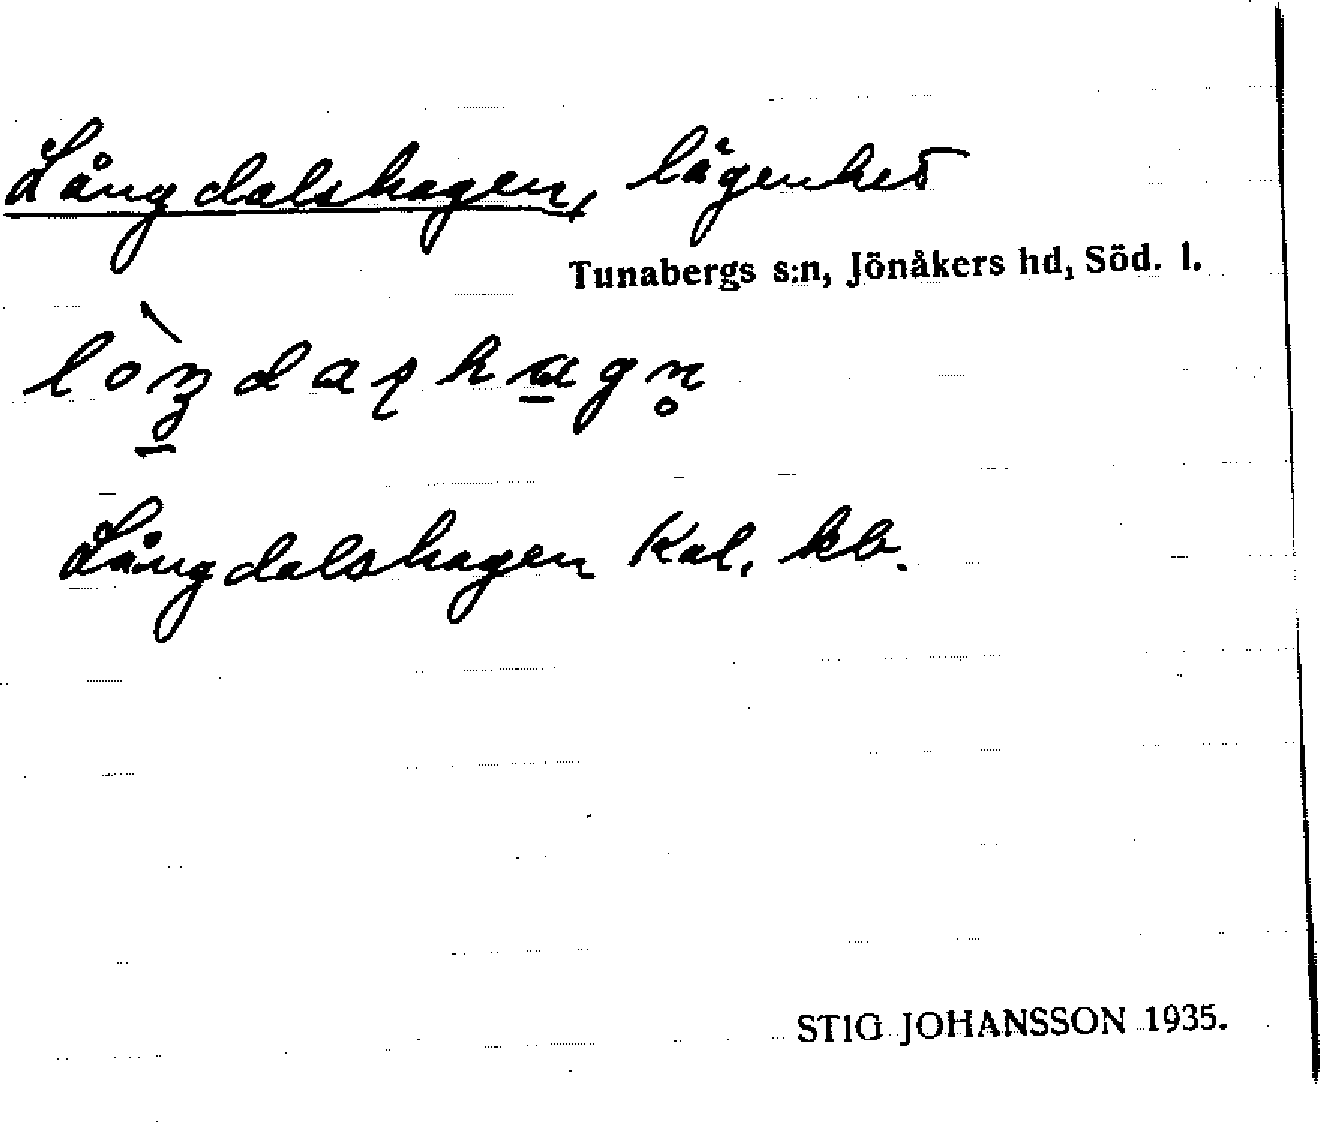 Långdalshagen, lägenhet
Tunabergs s:n, Jönåkers hd, Söd. l.
Långdalshagen Kal. kb.
STIG JOHANSSON 1935.